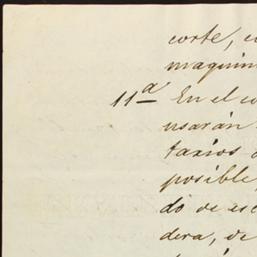 corte, c
maquin
11ª En el co
usarán
tarios d
posible,
do de es
dera, de